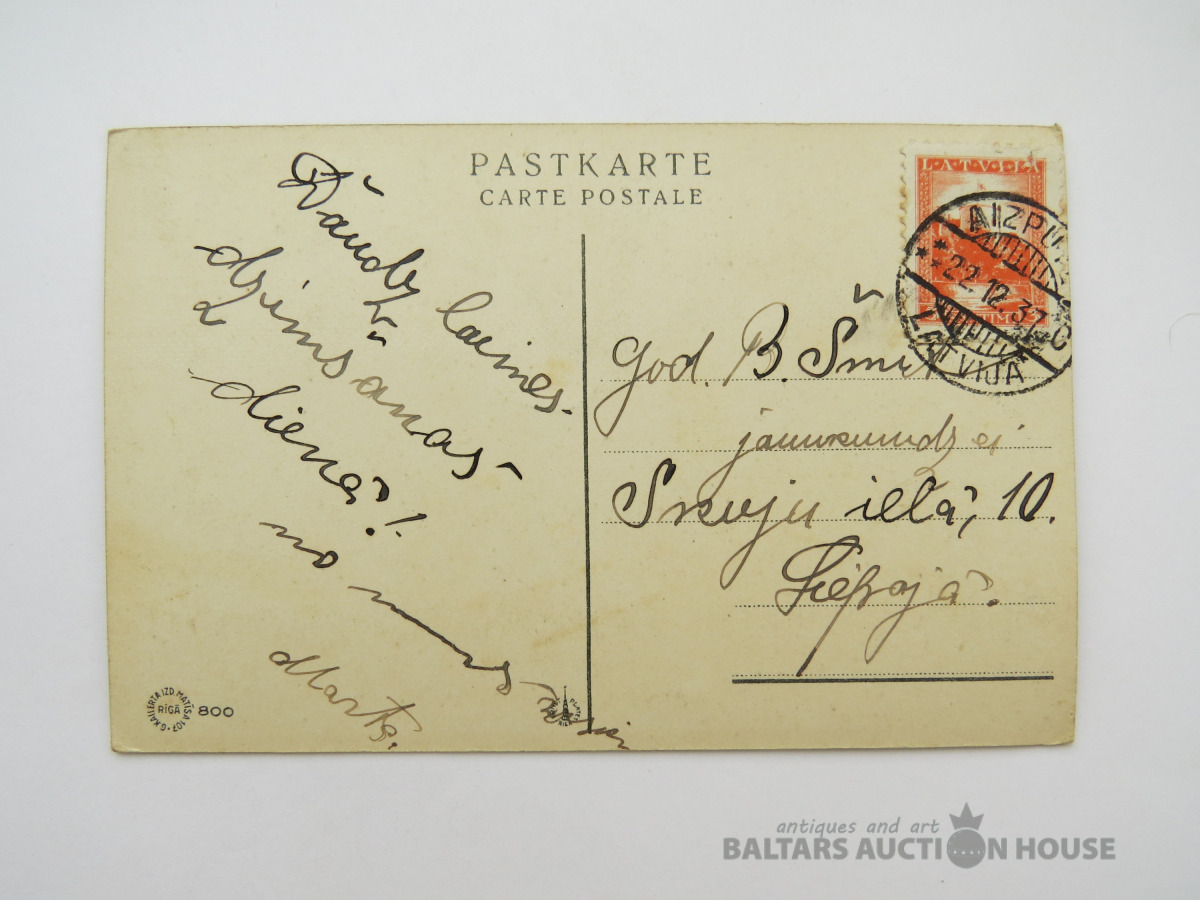 PASTKARTE
CARTE POSTALE
LATVIJA
AIZPU
22.12.37
LATVIJA
Daudz laimes
dzimšanas
dienā!
no
Marta
God. B. Šmi
jaunkundzei
Ielā, 10.
Liepājā.
G. KALLERTA IZD. MATĪSA 103
RĪGĀ
800
antiques and art
BALTARS AUCTION HOUSE